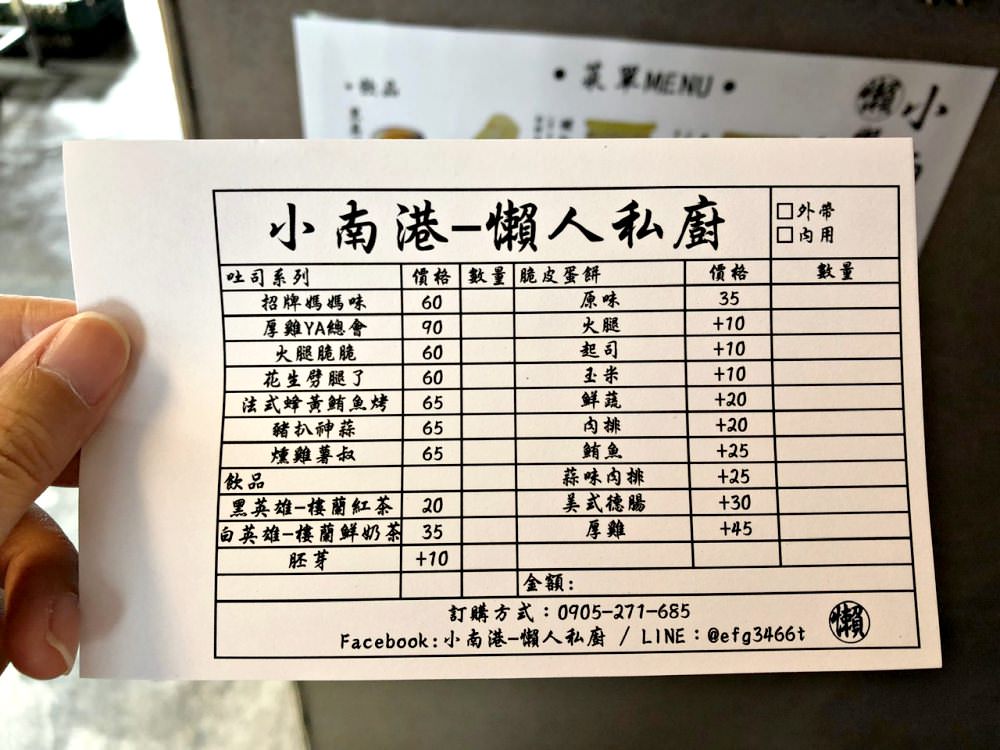 •飲品
•菜單MENU•
懶 小
小南港-懶人私廚
□外帶
□內用
吐司系列 價格 數量 脆皮蛋餅 價格 數量
招牌媽媽味 60 原味 35
厚雞YA總會 90 火腿 +10
火腿脆脆 60 起司 +10
花生劈腿了 60 玉米 +10
法式蜂黃鮪魚烤 65 鮮蔬 +20
豬扒神蒜 65 肉排 +20
燻雞薯叔 65 鮪魚 +25
飲品 蒜味肉排 +25
黑英雄-樓蘭紅茶 20 美式德腸 +30
白英雄-樓蘭鮮奶茶 35 厚雞 +45
胚芽 +10
金額:
訂購方式：0905-271-685
Facebook:小南港-懶人私廚 / LINE：@efg3466t
懶